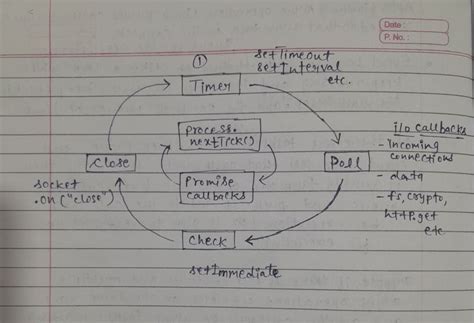 Date :
P. No. :
①
setTimeout
setInterval
etc.
Timer
process.
nextTick()
i/o callbacks
- Incoming
connections
- data
- fs, crypto,
http.get
etc
Close
Poll
socket
.on("close")
Promise
callbacks
Check
setImmediate